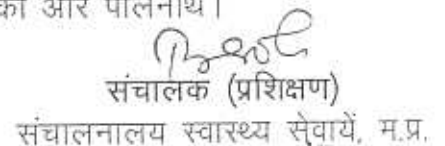 की ओर पालनार्थ।
संचालक (प्रशिक्षण)
संचालनालय स्वास्थ्य सेवायें, म.प्र.